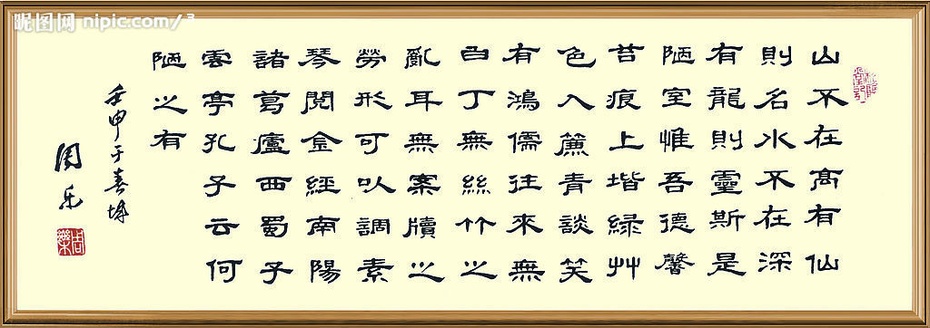 昵图网 nipic.com/3
山不在高有仙
則名水不在深
有龍則靈斯是
陋室惟吾德馨
苔痕上堦綠艸
色入簾青談笑
有鴻儒往來無
白丁無絲竹之
亂耳無案牘之
勞形可以調素
琴閱金經南陽
諸葛廬西蜀子
雲亭孔子云何
陋之有
壬申于喜
周乐
周樂